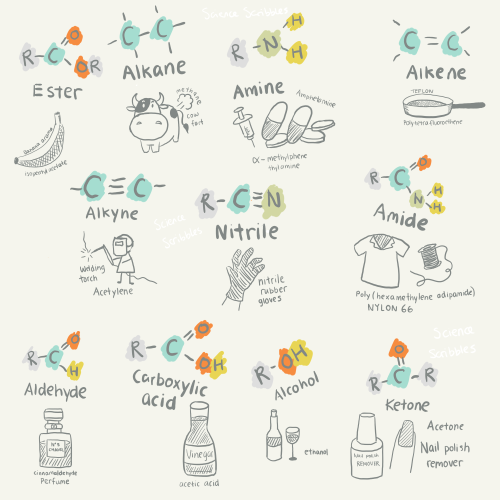 Science Scribbles
R C O OR
Ester
Banana aroma
isopentyl acetate
C C
Alkane
methane
cow
fart
R N H H
Amine
Amphetamine
α- methylphene
thylamine
C = C
Alkene
TEFLON
Polytetrafluoroethene
C ≡ C
Alkyne
Welding
torch
Acetylene
Science
Scribbles
R - C ≡ N
Nitrile
nitrile
rubber
gloves
R C O N H H
Amide
Poly(hexamethylene adipamide)
NYLON 66
R C O H
Aldehyde
N°5
CHANEL
cinnamaldehyde
Perfume
R C O OH
Carboxylic
acid
Vinegar
acetic acid
R OH
Alcohol
ethanol
Science
Scribbles
O
R C R
Ketone
NAIL POLISH
REMOVER
Acetone
Nail polish
remover